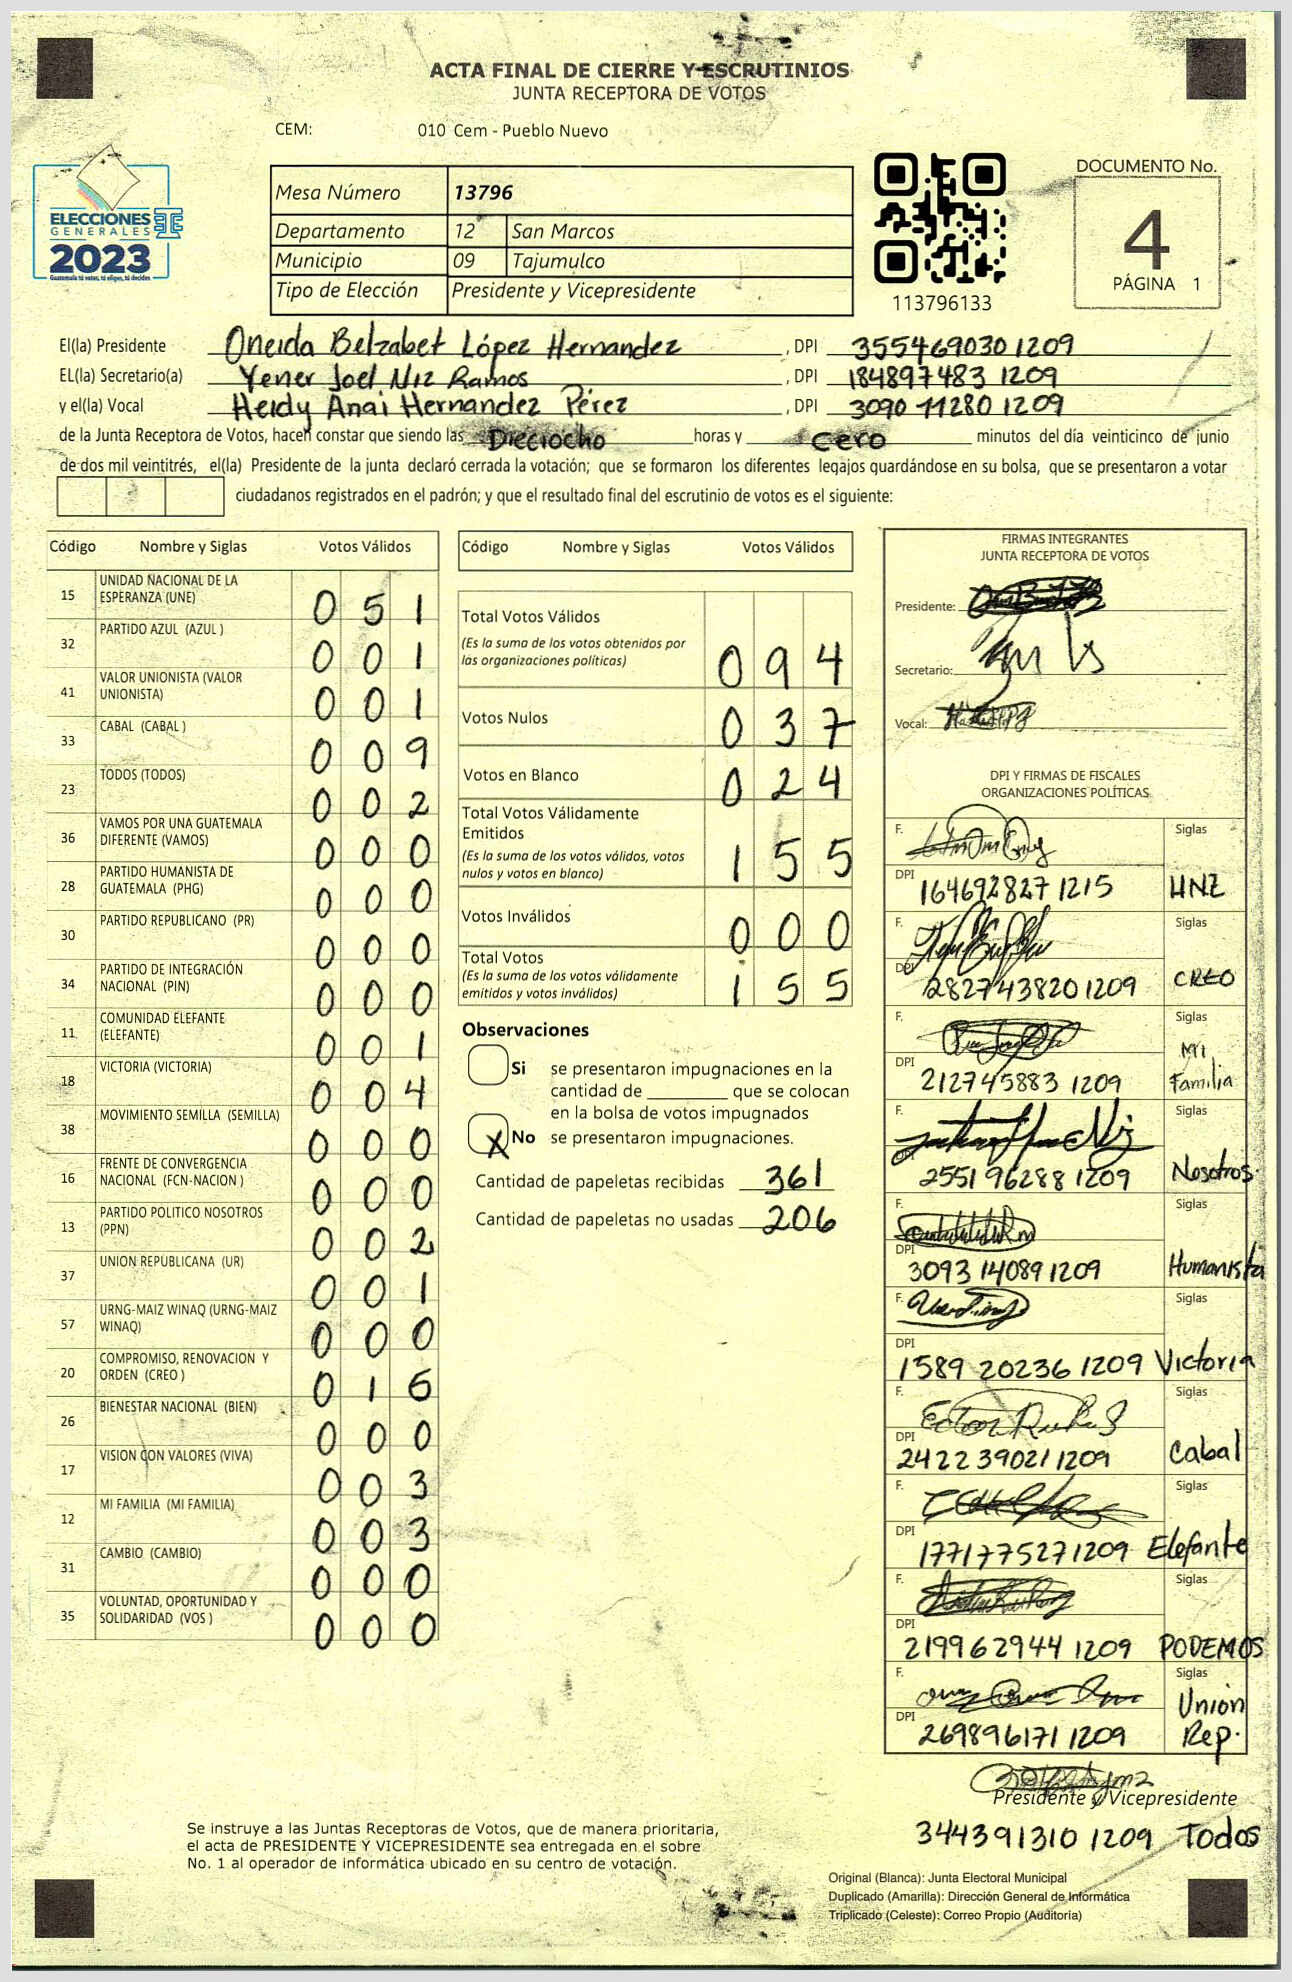 ACTA FINAL DE CIERRE Y ESCRUTINIOS
JUNTA RECEPTORA DE VOTOS
CEM: 010 Cem - Pueblo Nuevo
ELECCIONES
GENERALES
2023
Guatemala tú votas, tú eliges, tú decides
Mesa Número 13796
Departamento 12 San Marcos
Municipio 09 Tajumulco
Tipo de Elección Presidente y Vicepresidente
113796133
DOCUMENTO No.
4
PÁGINA 1
El(la) Presidente Oneida Belzabet López Hernandez , DPI 355469030 1209
EL(la) Secretario(a) Yener Joel Niz Ramos , DPI 184897483 1209
y el(la) Vocal Heidy Anai Hernandez Pérez , DPI 3090 11280 1209
de la Junta Receptora de Votos, hacen constar que siendo las Dieciocho horas y cero minutos del día veinticinco de junio
de dos mil veintitrés, el(la) Presidente de la junta declaró cerrada la votación; que se formaron los diferentes legajos guardándose en su bolsa, que se presentaron a votar
ciudadanos registrados en el padrón; y que el resultado final del escrutinio de votos es el siguiente:
Código Nombre y Siglas Votos Válidos
15 UNIDAD NACIONAL DE LA ESPERANZA (UNE) 0 5 1
32 PARTIDO AZUL (AZUL ) 0 0 1
41 VALOR UNIONISTA (VALOR UNIONISTA) 0 0 1
33 CABAL (CABAL ) 0 0 9
23 TODOS (TODOS) 0 0 2
36 VAMOS POR UNA GUATEMALA DIFERENTE (VAMOS) 0 0 0
28 PARTIDO HUMANISTA DE GUATEMALA (PHG) 0 0 0
30 PARTIDO REPUBLICANO (PR) 0 0 0
34 PARTIDO DE INTEGRACIÓN NACIONAL (PIN) 0 0 0
11 COMUNIDAD ELEFANTE (ELEFANTE) 0 0 1
18 VICTORIA (VICTORIA) 0 0 4
38 MOVIMIENTO SEMILLA (SEMILLA) 0 0 0
16 FRENTE DE CONVERGENCIA NACIONAL (FCN-NACION ) 0 0 0
13 PARTIDO POLITICO NOSOTROS (PPN) 0 0 2
37 UNION REPUBLICANA (UR) 0 0 1
57 URNG-MAIZ WINAQ (URNG-MAIZ WINAQ) 0 0 0
20 COMPROMISO, RENOVACION Y ORDEN (CREO ) 0 1 6
26 BIENESTAR NACIONAL (BIEN) 0 0 0
17 VISION CON VALORES (VIVA) 0 0 3
12 MI FAMILIA (MI FAMILIA) 0 0 3
31 CAMBIO (CAMBIO) 0 0 0
35 VOLUNTAD, OPORTUNIDAD Y SOLIDARIDAD (VOS ) 0 0 0
Código Nombre y Siglas Votos Válidos
Total Votos Válidos
(Es la suma de los votos obtenidos por
las organizaciones políticas) 0 9 4
Votos Nulos 0 3 7
Votos en Blanco 0 2 4
Total Votos Válidamente
Emitidos
(Es la suma de los votos válidos, votos
nulos y votos en blanco) 1 5 5
Votos Inválidos 0 0 0
Total Votos
(Es la suma de los votos válidamente
emitidos y votos inválidos) 1 5 5
Observaciones
Si se presentaron impugnaciones en la
cantidad de ________ que se colocan
en la bolsa de votos impugnados
X No se presentaron impugnaciones.
Cantidad de papeletas recibidas 361
Cantidad de papeletas no usadas 206
FIRMAS INTEGRANTES
JUNTA RECEPTORA DE VOTOS
Presidente:
Secretario:
Vocal:
DPI Y FIRMAS DE FISCALES
ORGANIZACIONES POLÍTICAS
F. Siglas
DPI 164692827 1215 UNE
F. Siglas
DPI 282743820 1209 CREO
F. Siglas
DPI 212745883 1209 Mi Familia
F. Siglas
2551 96288 1209 Nosotros.
F. Siglas
DPI 3093 14089 1209 Humanista
F. Siglas
DPI 1589 20236 1209 Victoria
F. Siglas
DPI 2422 39021 1209 Cabal
F. Siglas
DPI 177177527 1209 Elefante
F. Siglas
DPI 219962944 1209 PODEMOS
F. Siglas
DPI 269896171 1209 Unión Rep.
Presidente y Vicepresidente
344391310 1209 Todos
Se instruye a las Juntas Receptoras de Votos, que de manera prioritaria,
el acta de PRESIDENTE Y VICEPRESIDENTE sea entregada en el sobre
No. 1 al operador de informática ubicado en su centro de votación.
Original (Blanca): Junta Electoral Municipal
Duplicado (Amarilla): Dirección General de Informática
Triplicado (Celeste): Correo Propio (Auditoría)